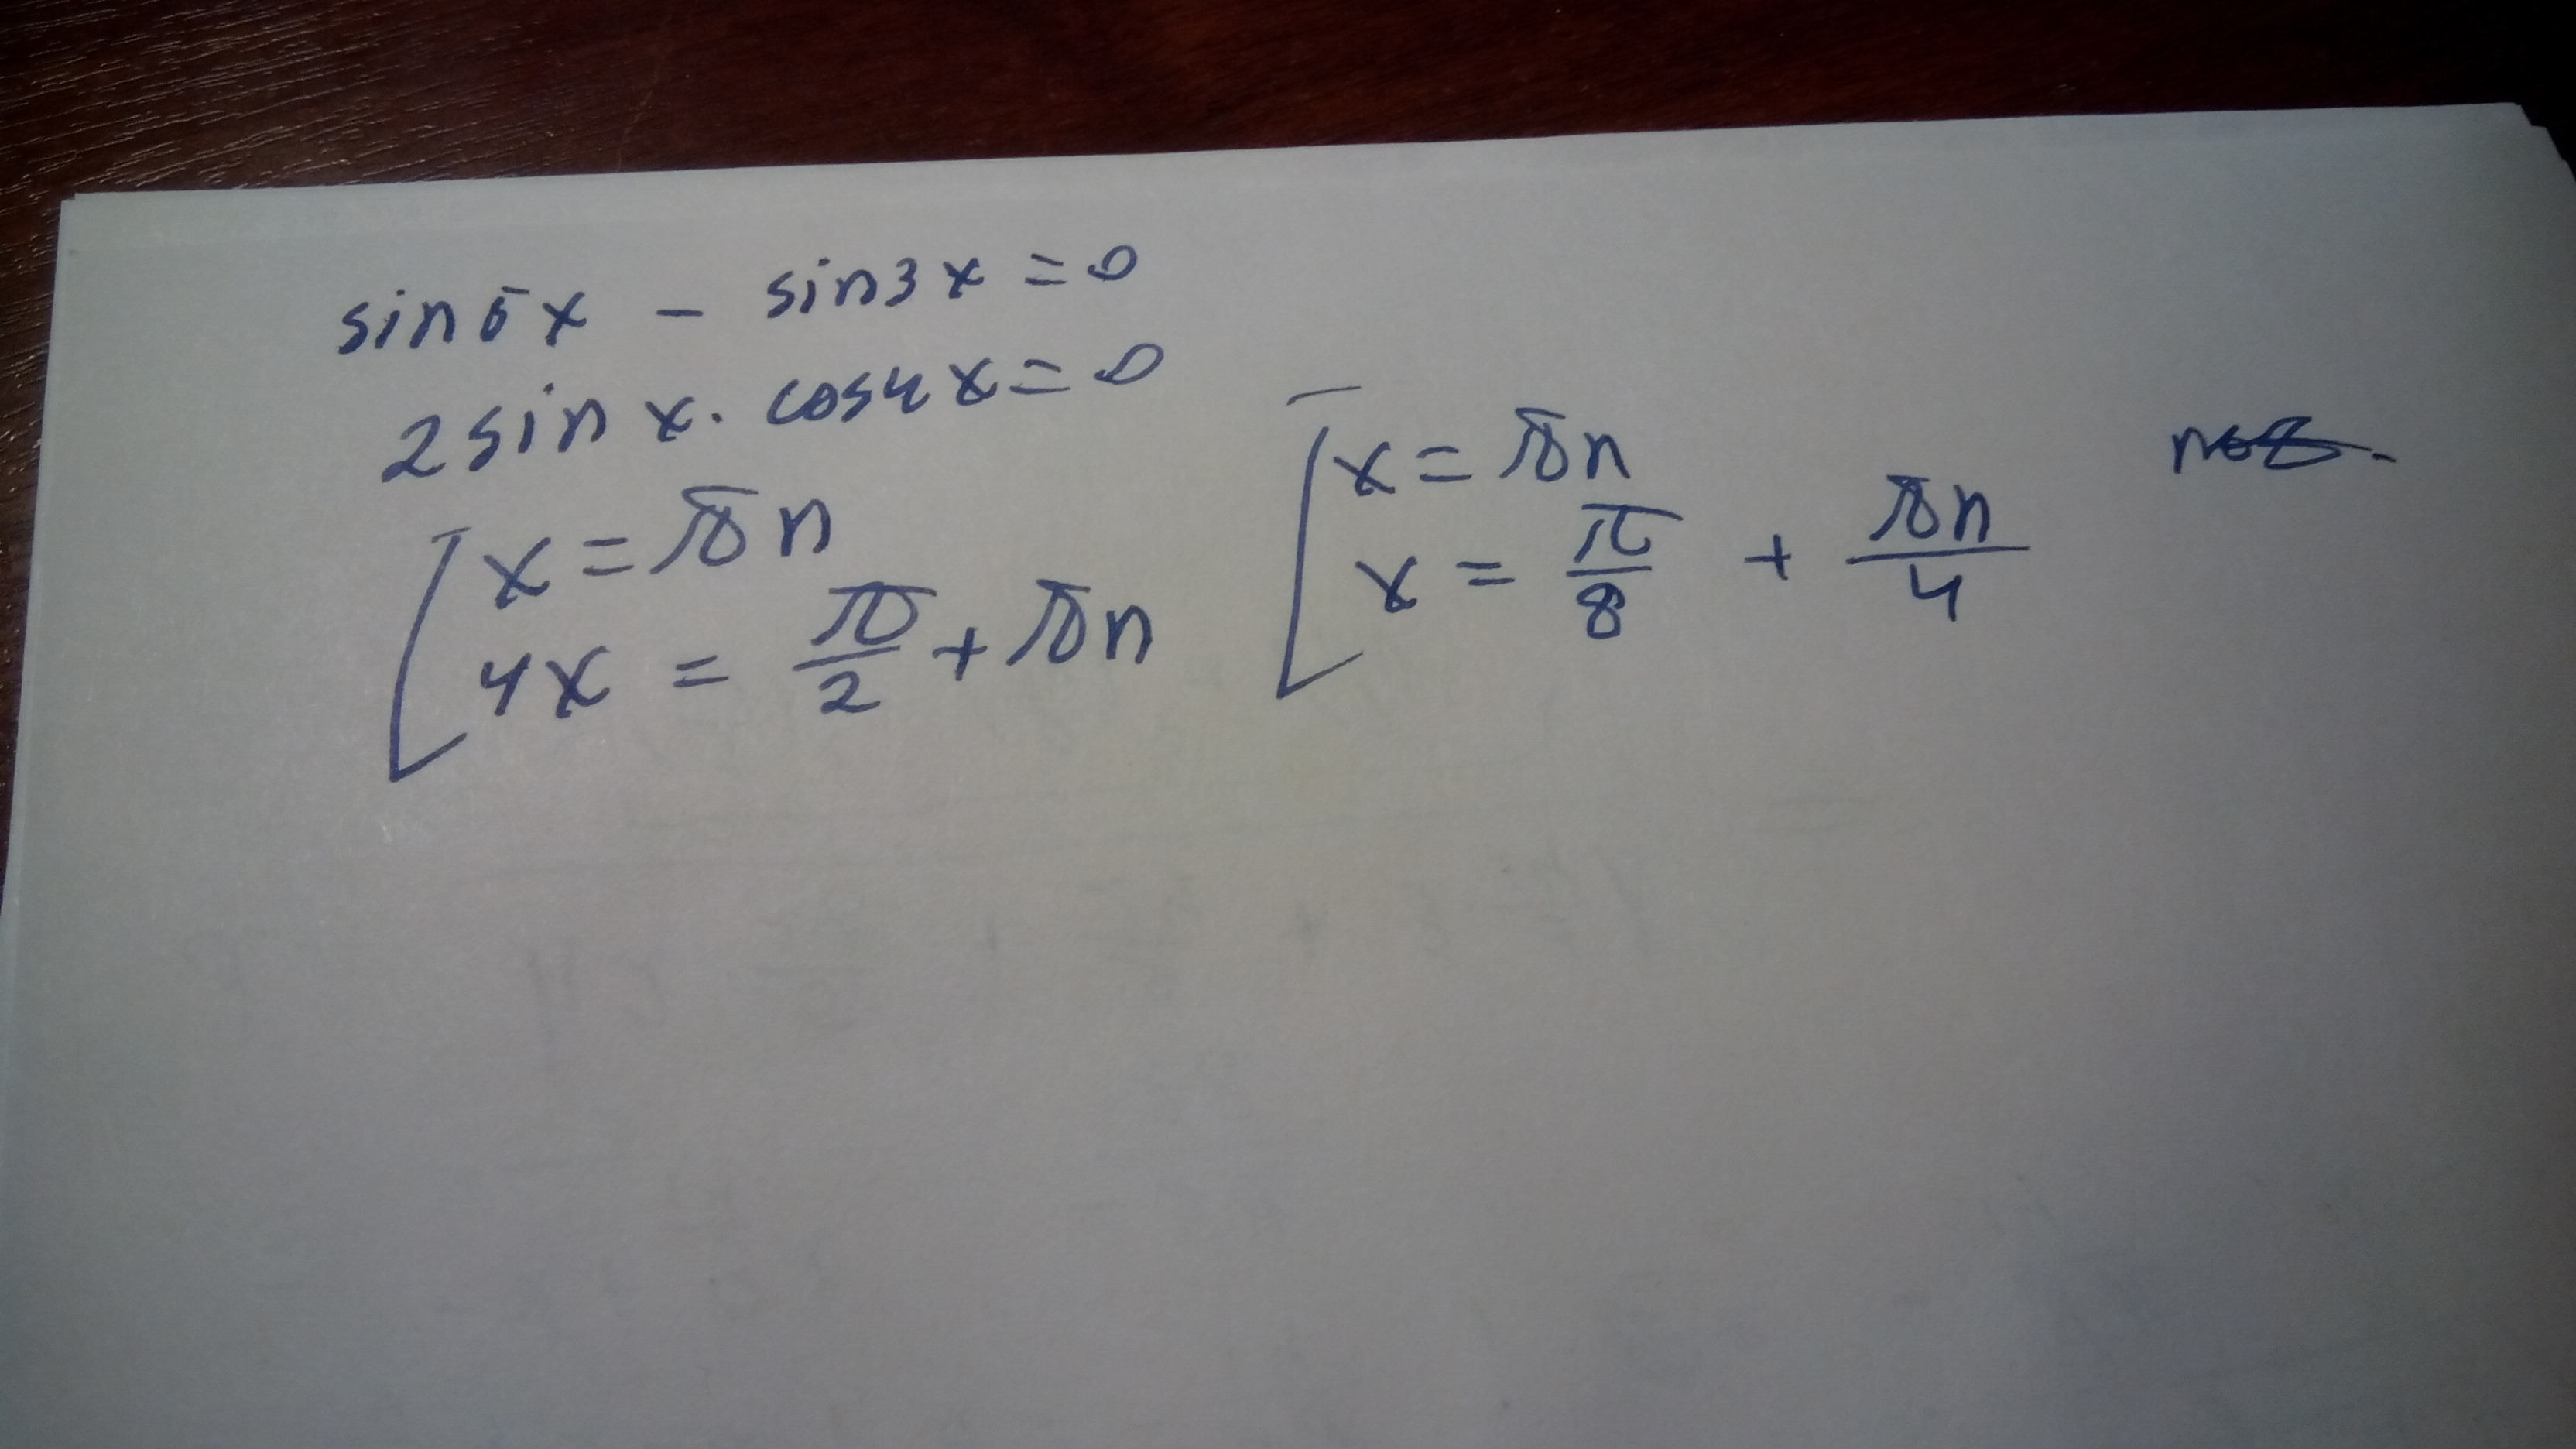 sin5x - sin3x = 0
2sin x · cos4x = 0
[ x = πn
4x = π/2 + πn
[ x = πn
x = π/8 + πn/4